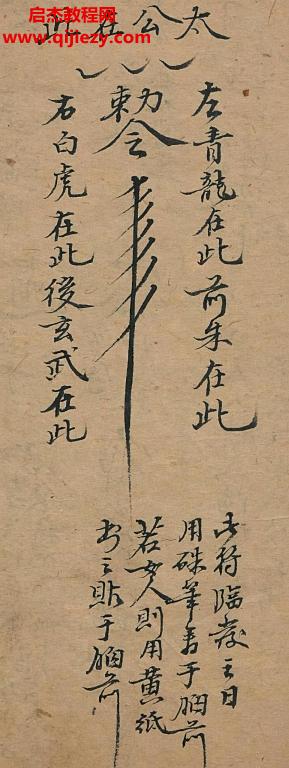 启杰教程网
www.qijiezy.com
太公在此
左青龍在此前朱在此
勅令
右白虎在此後玄武在此
此符臨產之日
用硃筆書于胸前
若女人則用黄紙
書之貼于胸前